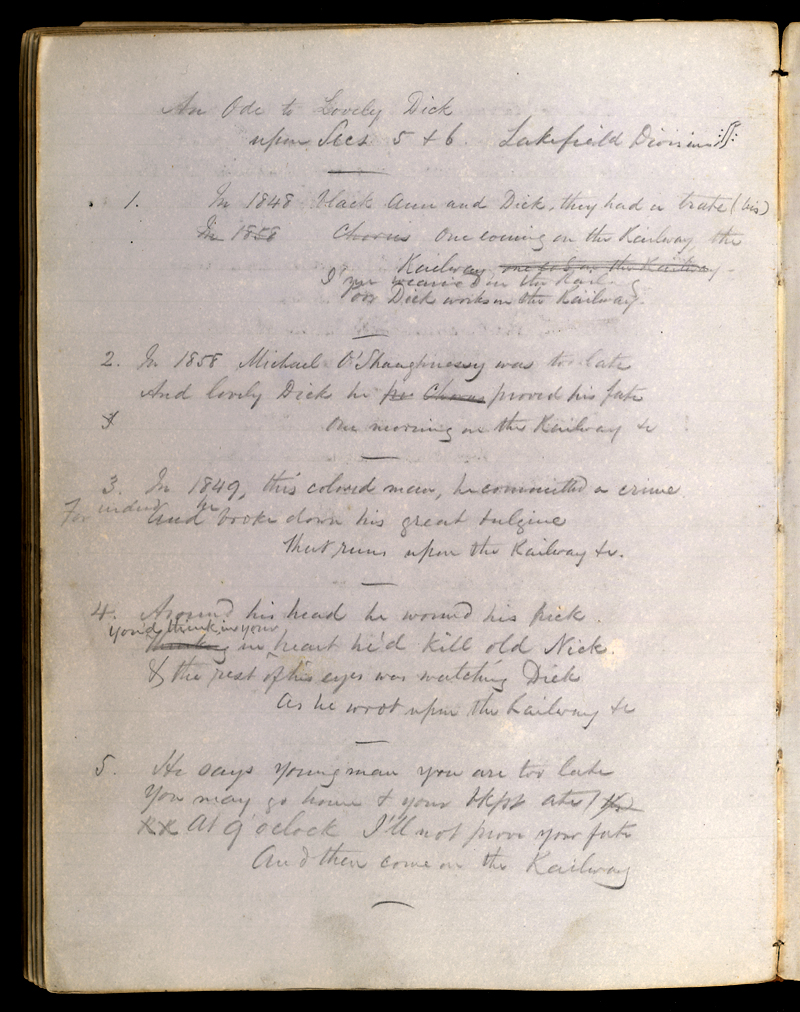 An Ode to Lovely Dick
upon Secs 5 & 6. Lakefield Division
1. In 1848 black Ann and Dick, they had a trate (bis)
In 1858 Chorus One coming on the Railway, the
Railway on the Railway
I'm wearied on the Rail
poor Dick works on the Railway.
2. In 1858 Michael O'Shaughnessy was too late
And lovely Dick he Chorus proved his fate
One morning on the Railway &c
3. In 1849, this colored man, he committed a crime
For indeed he
And broke down his great bulgine
that runs upon the Railway &c.
4. Around his head he wound his pick.
you'd think in your
thinking in heart he'd kill old Nick.
& the rest of his eyes was watching Dick
As he wrot upon the Railway &c
5. He says young man you are too late
You may go home & your bkfst ate
At 9 o'clock I'll not prove your fate
And then come on the Railway